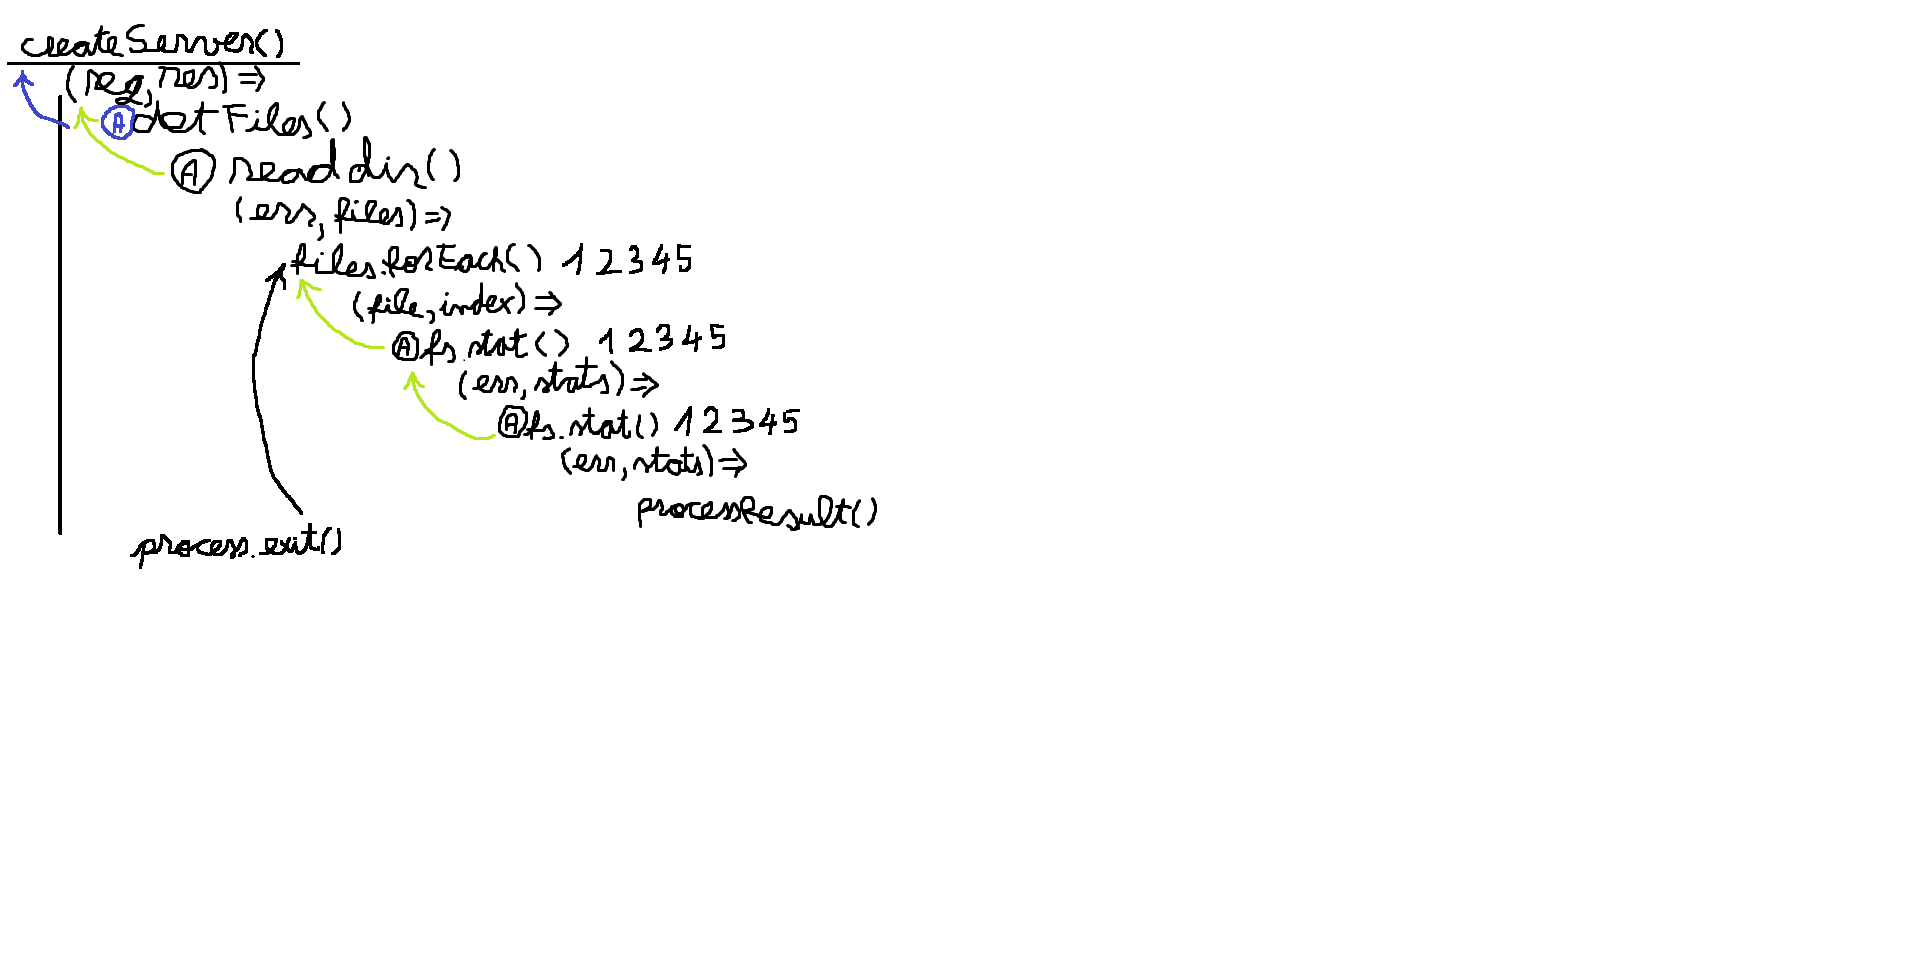 createServer()
(req, res) =>
A dotFiles()
A readdir()
(err, files) =>
files.forEach() 1 2 3 4 5
(file, index) =>
A fs.stat() 1 2 3 4 5
(err, stats) =>
A fs.stat() 1 2 3 4 5
(err, stats) =>
processResult()
process.exit()